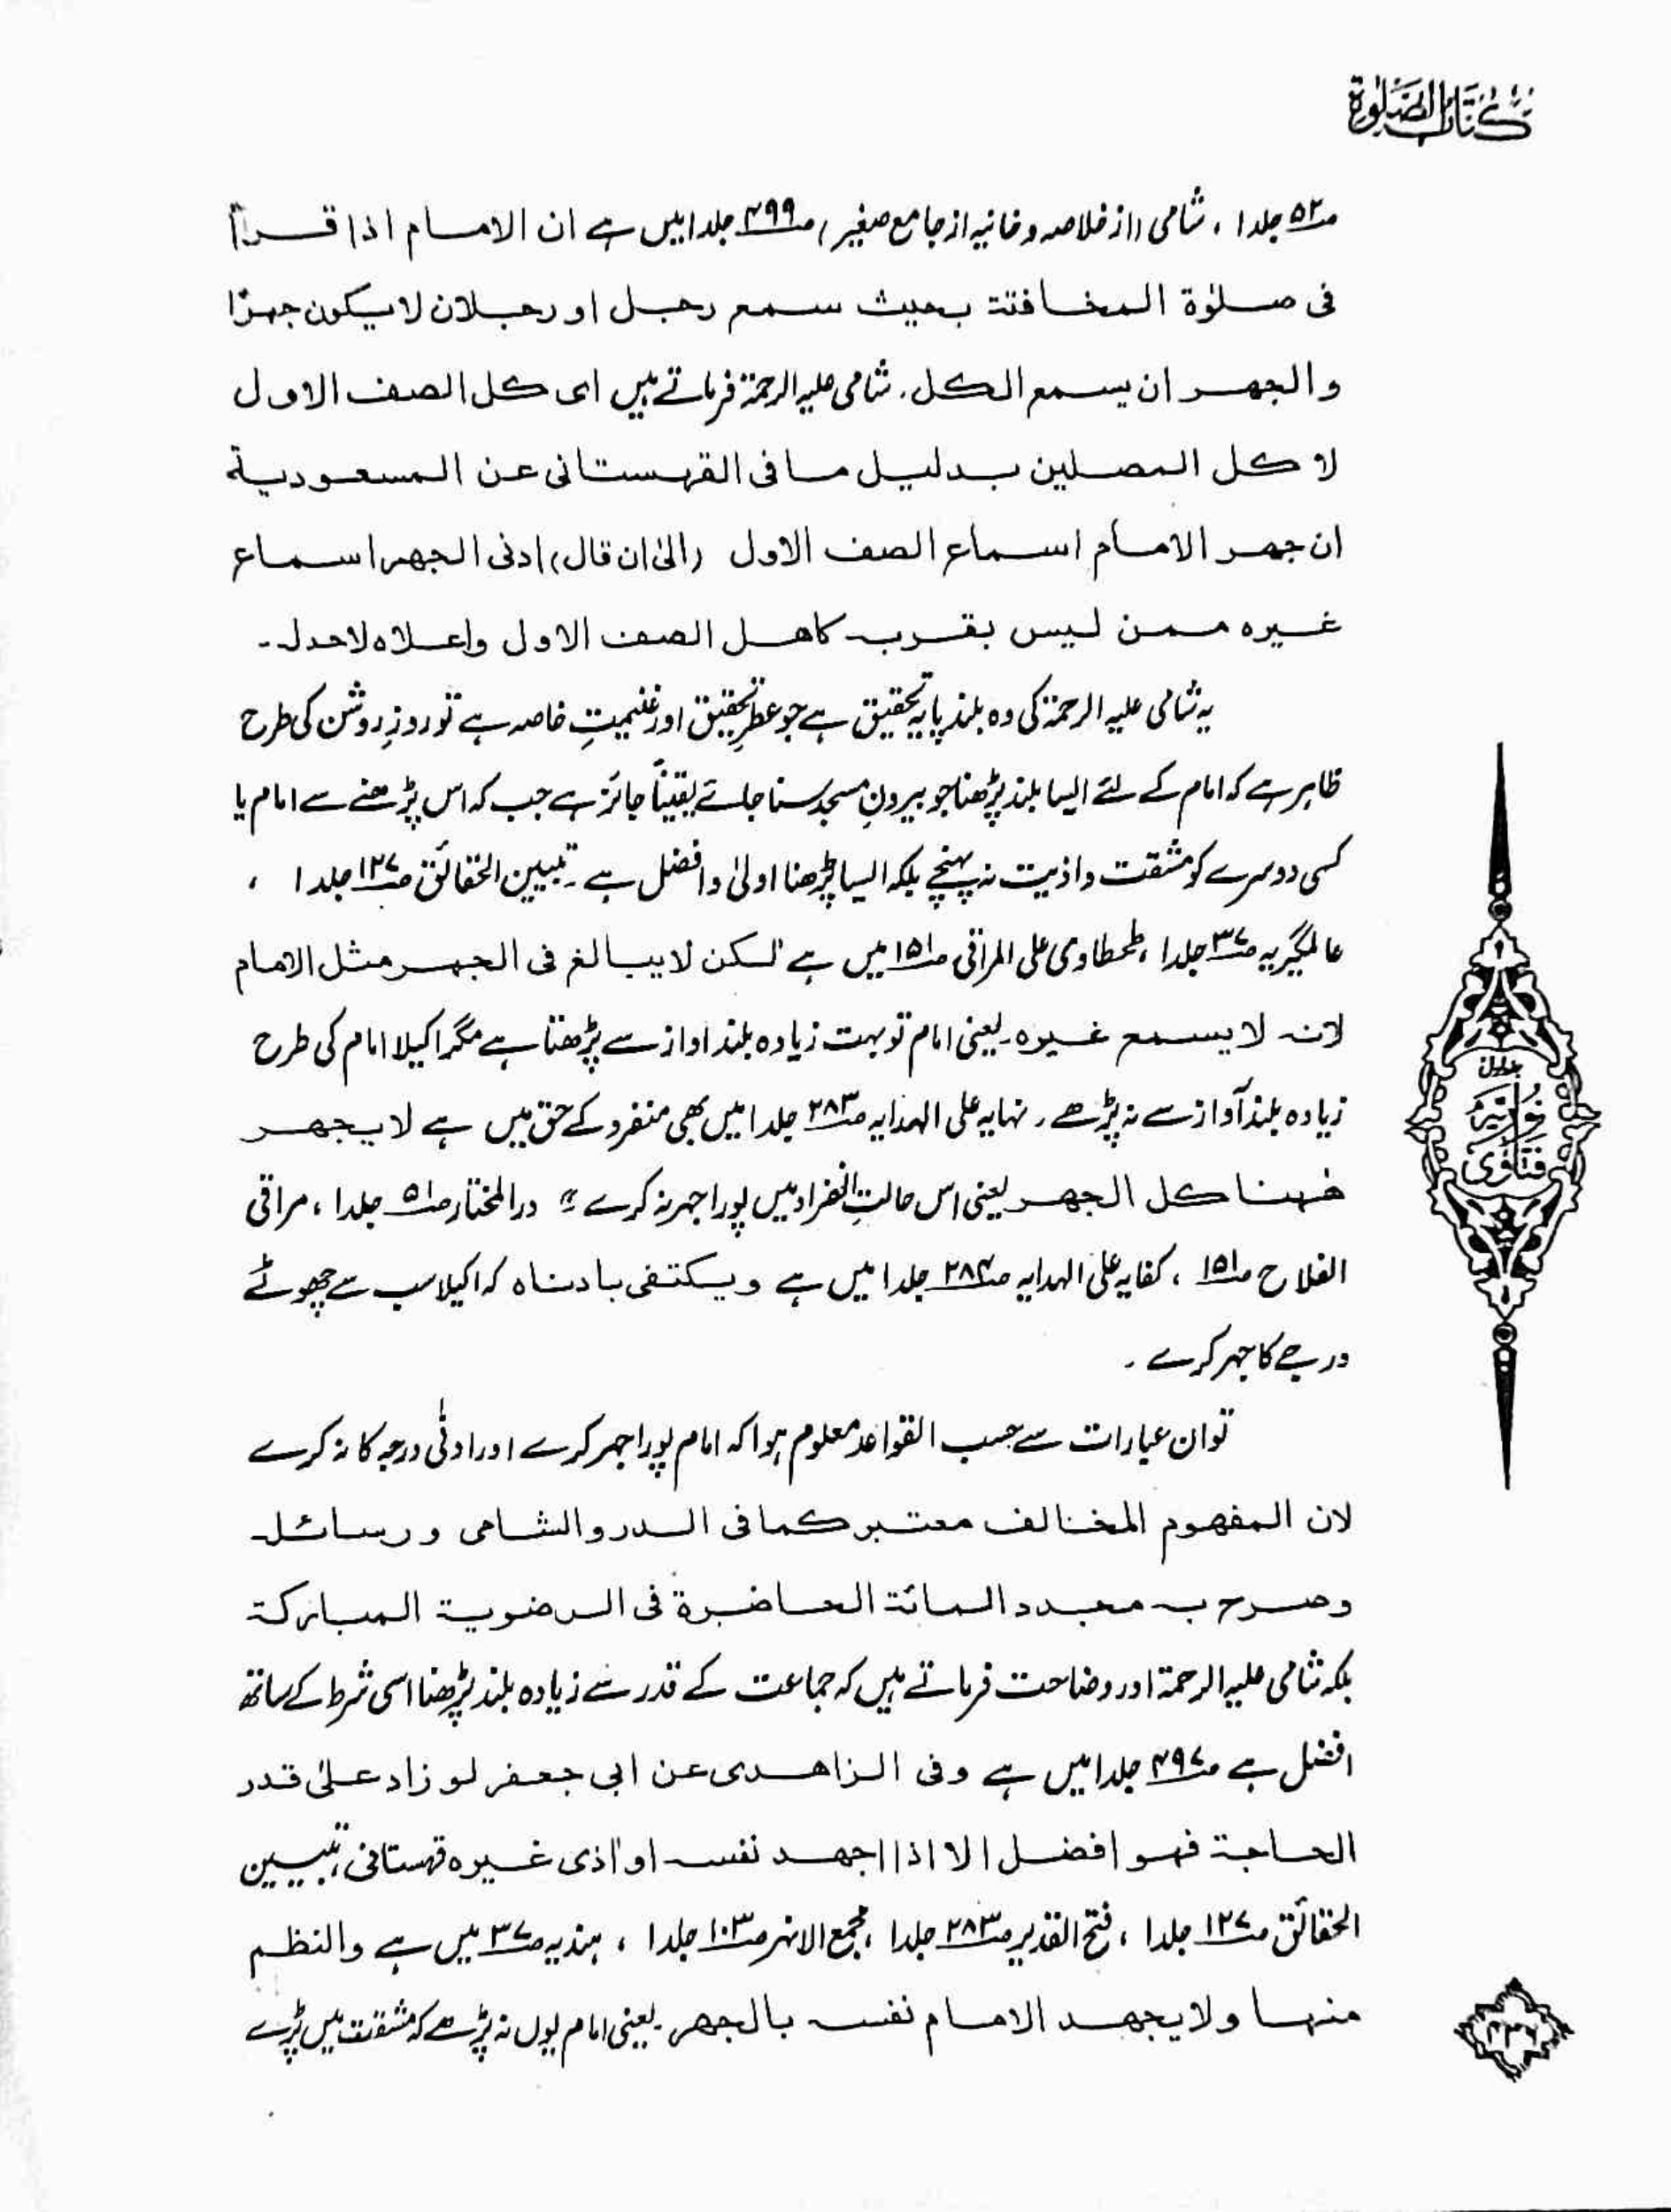 كتاب الصلوٰة
ص۵۲ جلد۱ ، شامی (از خلاصہ و خانیہ از جامع صغیر) ص۴۹۹ جلد۱ میں ہے ان الامام اذا قرأ
فی صلوٰة المخافتة بحیث سمع رجل او رجلان لا یکون جهرًا
والجهر ان یسمع الکل۔ شامی علیہ الرحمۃ فرماتے ہیں ای کل الصف الاول
لا کل المصلین بدلیل ما فی القهستانی عن المسعودیة
ان جهر الامام اسماع الصف الاول (الیٰ ان قال) ادنی الجهر اسماع
غیره ممن لیس بقربه کاهل الصف الاول واعلاه لاحد له۔
یہ شامی علیہ الرحمۃ کی وہ بلند پایہ تحقیق ہے جو عطرِ تحقیق اور غنیمتِ خاصہ ہے تو روزِ روشن کی طرح
ظاہر ہے کہ امام کے لئے ایسا بلند پڑھنا جو بیرونِ مسجد سنا جائے یقیناً جائز ہے جب کہ اس پڑھنے سے امام یا
کسی دوسرے کو مشقت و اذیت نہ پہنچے بلکہ ایسا پڑھنا اولیٰ و افضل ہے۔ تبیین الحقائق ص۱۲۷ جلد ۱ ،
عالمگیریہ ص۳۷ جلد۱ ، طحطاوی علی المراقی ص۱۵۱ میں ہے لٰکن لا یبالغ فی الجهر مثل الامام
لانه لا یسمع غیره۔ یعنی امام تو بہت زیادہ بلند اواز سے پڑھتا ہے مگر اکیلا امام کی طرح
زیادہ بلند آواز سے نہ پڑھے۔ نہایہ علی الہدایہ ص۲۸۳ جلد۱ میں بھی منفرد کے حق میں ہے لا یجهر
فهنا کل الجهر یعنی اس حالتِ انفراد میں پورا جہر نہ کرے " درالمختار ص۵۱ جلد۱ ، مراقی
الفلاح ص۱۵۱ ، کفایہ علی الہدایہ ص۲۸۴ جلد۱ میں ہے و یکتفی بادناه کہ اکیلا سب سے چھوٹے
درجے کا جہر کرے ۔
تو ان عبارات سے حسب القواعد معلوم ہوا کہ امام پورا جہر کرے اور ادنٰی درجہ کا نہ کرے
لان المفهوم المخالف معتبر کما فی الدر والشامی و رسائله
وصرح به مجدد المائة الحاضرة فی الرضویة المبارکة
بلکہ شامی علیہ الرحمۃ اور وضاحت فرماتے ہیں کہ جماعت کے قدر سے زیادہ بلند پڑھنا اسی شرط کے ساتھ
افضل ہے ص۴۹۷ جلد۱ میں ہے وفی الزاهدی عن ابی جعفر لو زاد علیٰ قدر
الحاجة فهو افضل الا اذا اجهد نفسه او اٰذی غیره قهستانی، تبیین
الحقائق ص۱۲۷ جلد۱ ، فتح القدیر ص۲۸۳ جلد۱ ، مجمع الانہر ص۱۰۳ جلد۱ ، ہندیہ ص۳۷ میں ہے والنظم
منها ولا یجهد الامام نفسه بالجهر۔ یعنی امام یوں نہ پڑھے کہ مشقت میں پڑے
جلد اول
فتاویٰ
نوریہ